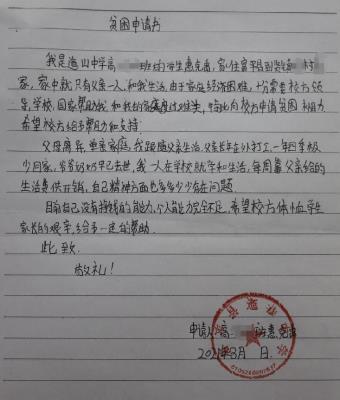 贫困申请书
我是 山中学高 班的学生惠 ,家住富平县到贤 村
家,家中就只有父亲一人,和我生活,由于家庭经济困难,十分需要校方领
导,学校,国家帮助我和我的家庭度过难关,特此向校方申请贫困补助
希望校方给予帮助和支持.
父母离异,重离家庭,我跟随父亲生活,父亲长年在外打工,一年四季很
少回家,爷爷奶奶早已去世,我一人在学校就学和生活,每周靠父亲给的
生活费供开销,自己精神方面也多多少少存在问题.
目前自己没有挣钱的能力,个人能力完全不足,希望校方体恤学生
家长的艰辛,给予一定的帮助.
此致
敬礼!
申请人:高 班惠
2021年3月 日.